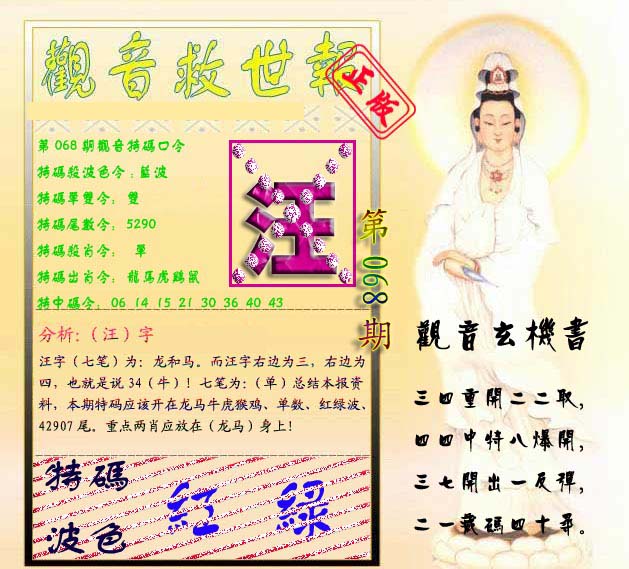 觀音救世報
正版
第068期觀音特碼口令
特碼殺波色令:藍波
特碼單雙令: 雙
特碼尾數令: 5290
特碼殺肖令: 單
特碼出肖令: 龍馬虎鷄鼠
特中碼令: 06 14 15 21 30 36 40 43
汪
第068期
分析:（汪）字
汪字（七笔）为：龙和马。而汪字右边为三，右边为
四，也就是说 34（牛）！七笔为：(单）总结本报资
料，本期特码应该开在龙马牛虎猴鸡、单数、红绿波、
42907 尾。重点两肖应放在（龙马）身上！
特碼
波色
紅 綠
觀音玄機書
三四重開二二取，
四四中特八爆開，
三七開出一反彈，
二一載碼四十尋。